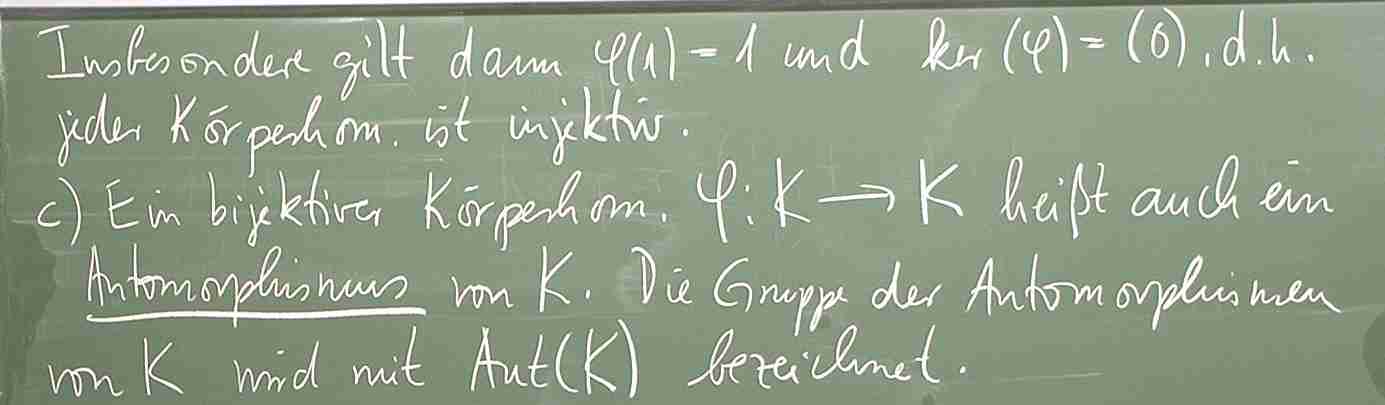 Insbesondere gilt dann φ(1) = 1 und ker (φ) = (0), d.h.
jeder Körperhom. ist injektiv.
c) Ein bijektiver Körperhom. φ: K → K heißt auch ein
Automorphismus von K. Die Gruppe der Automorphismen
von K wird mit Aut(K) bezeichnet.